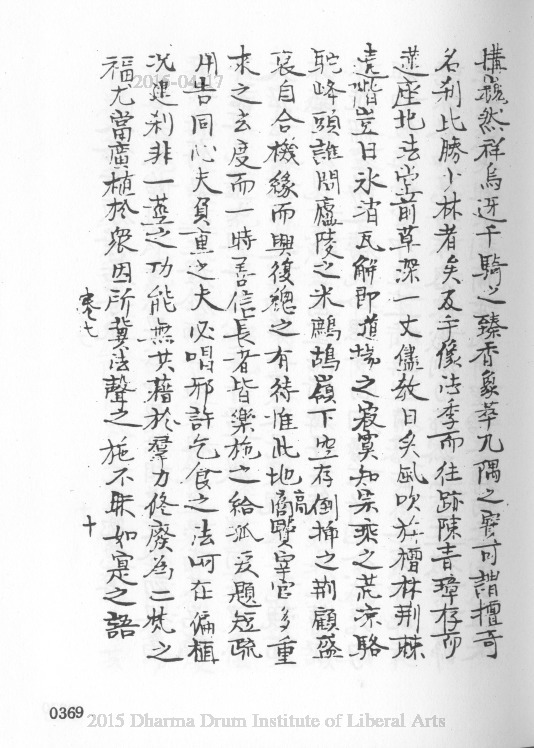 搆巍然祥烏迓千騎之臻香象萃九隅之寶可謂檀奇
名刹比勝少林者矣及乎像法季而往跡陳青璋存而
蓮座圮法堂前草深一丈儘教日炙風吹旃檀林荆棘
遶堦豈日氷消瓦解即道塲之寂寞知吴乘之荒凉駱
駝峰頭誰問廬陵之米鷓鴣嶺下空存倒插之荆顧盛
衰自合機緣而興復總之有待惟此地高賢宰官多重
來之玄度而一時善信長者皆樂施之給孤爰題短疏
用告同心夫負重之夫必唱邪許乞食之法呵在偏植
况建刹非一莖之功能無共藉於羣力修廢為二梵之
福尤當廣植於衆因所冀法聲之施不昧如寔之語
卷七
十
0369 2015 Dharma Drum Institute of Liberal Arts
2015-04-17